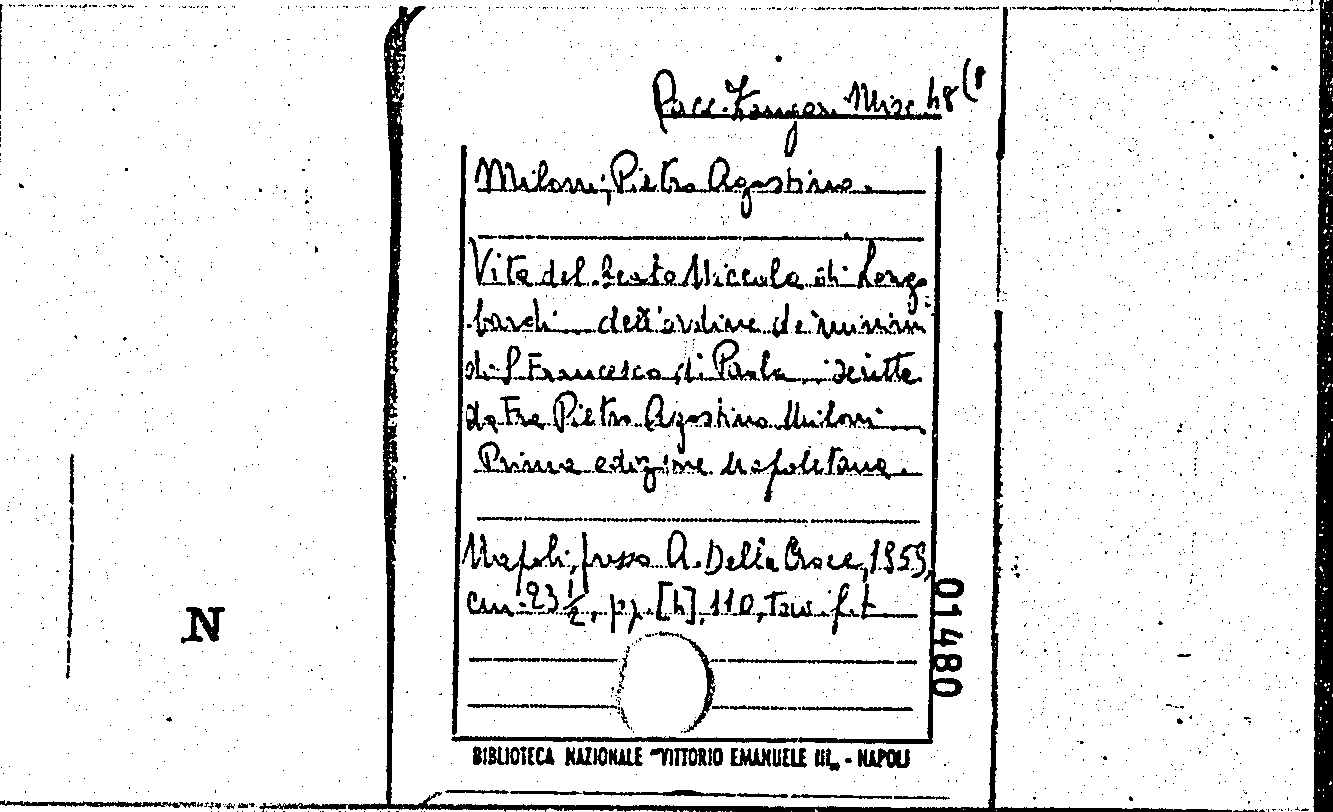 Racc. Zangari Misc. h8(8
Miloni, Pietro Agostino.
Vita del beato Niccola di Longo
bardi dell'ordine de' minimi
di S. Francesco di Paola scritta
da Fra Pietro Agostino Miloni
Prima edizione napoletana.
Napoli, presso A. Della Croce, 1959,
cm. 23 1/2, pp. [h], 110, tav. f. t.
01480
N
BIBLIOTECA NAZIONALE "VITTORIO EMANUELE III„ - NAPOLI